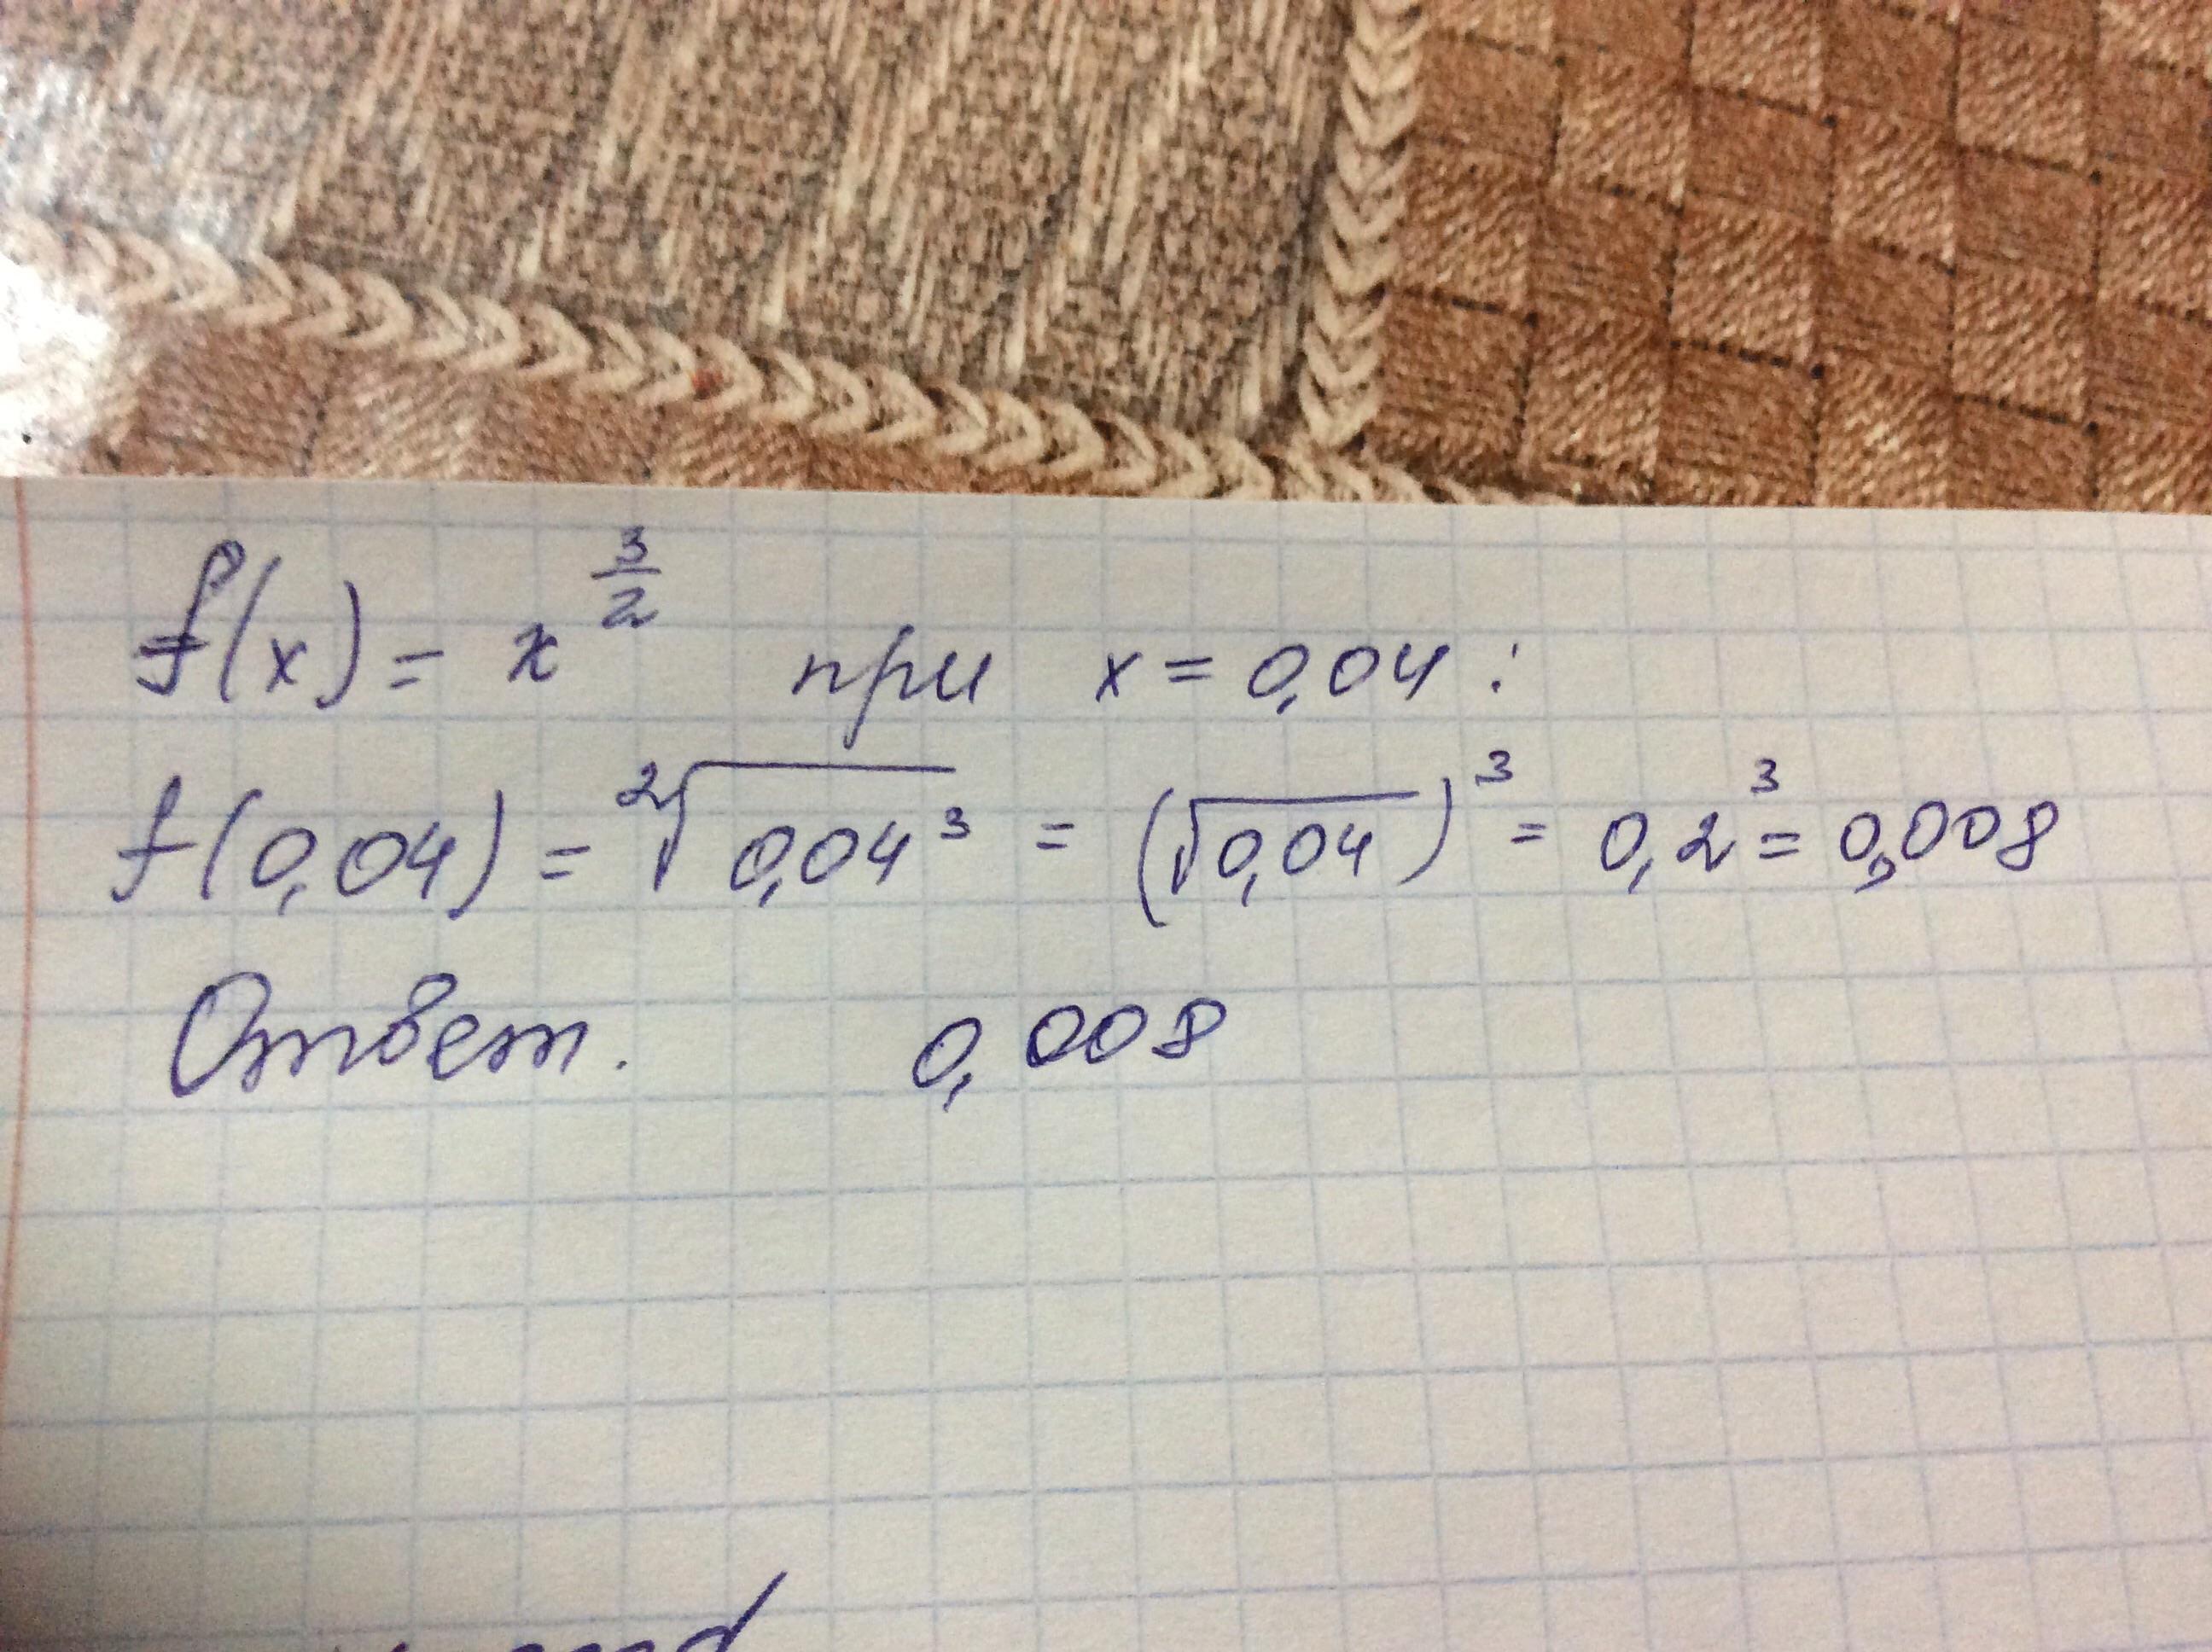 f(x) = x^{3/2} при x = 0,04 :
f(0,04) = ²√(0,04³) = (√0,04)³ = 0,2³ = 0,008
Ответ. 0,008